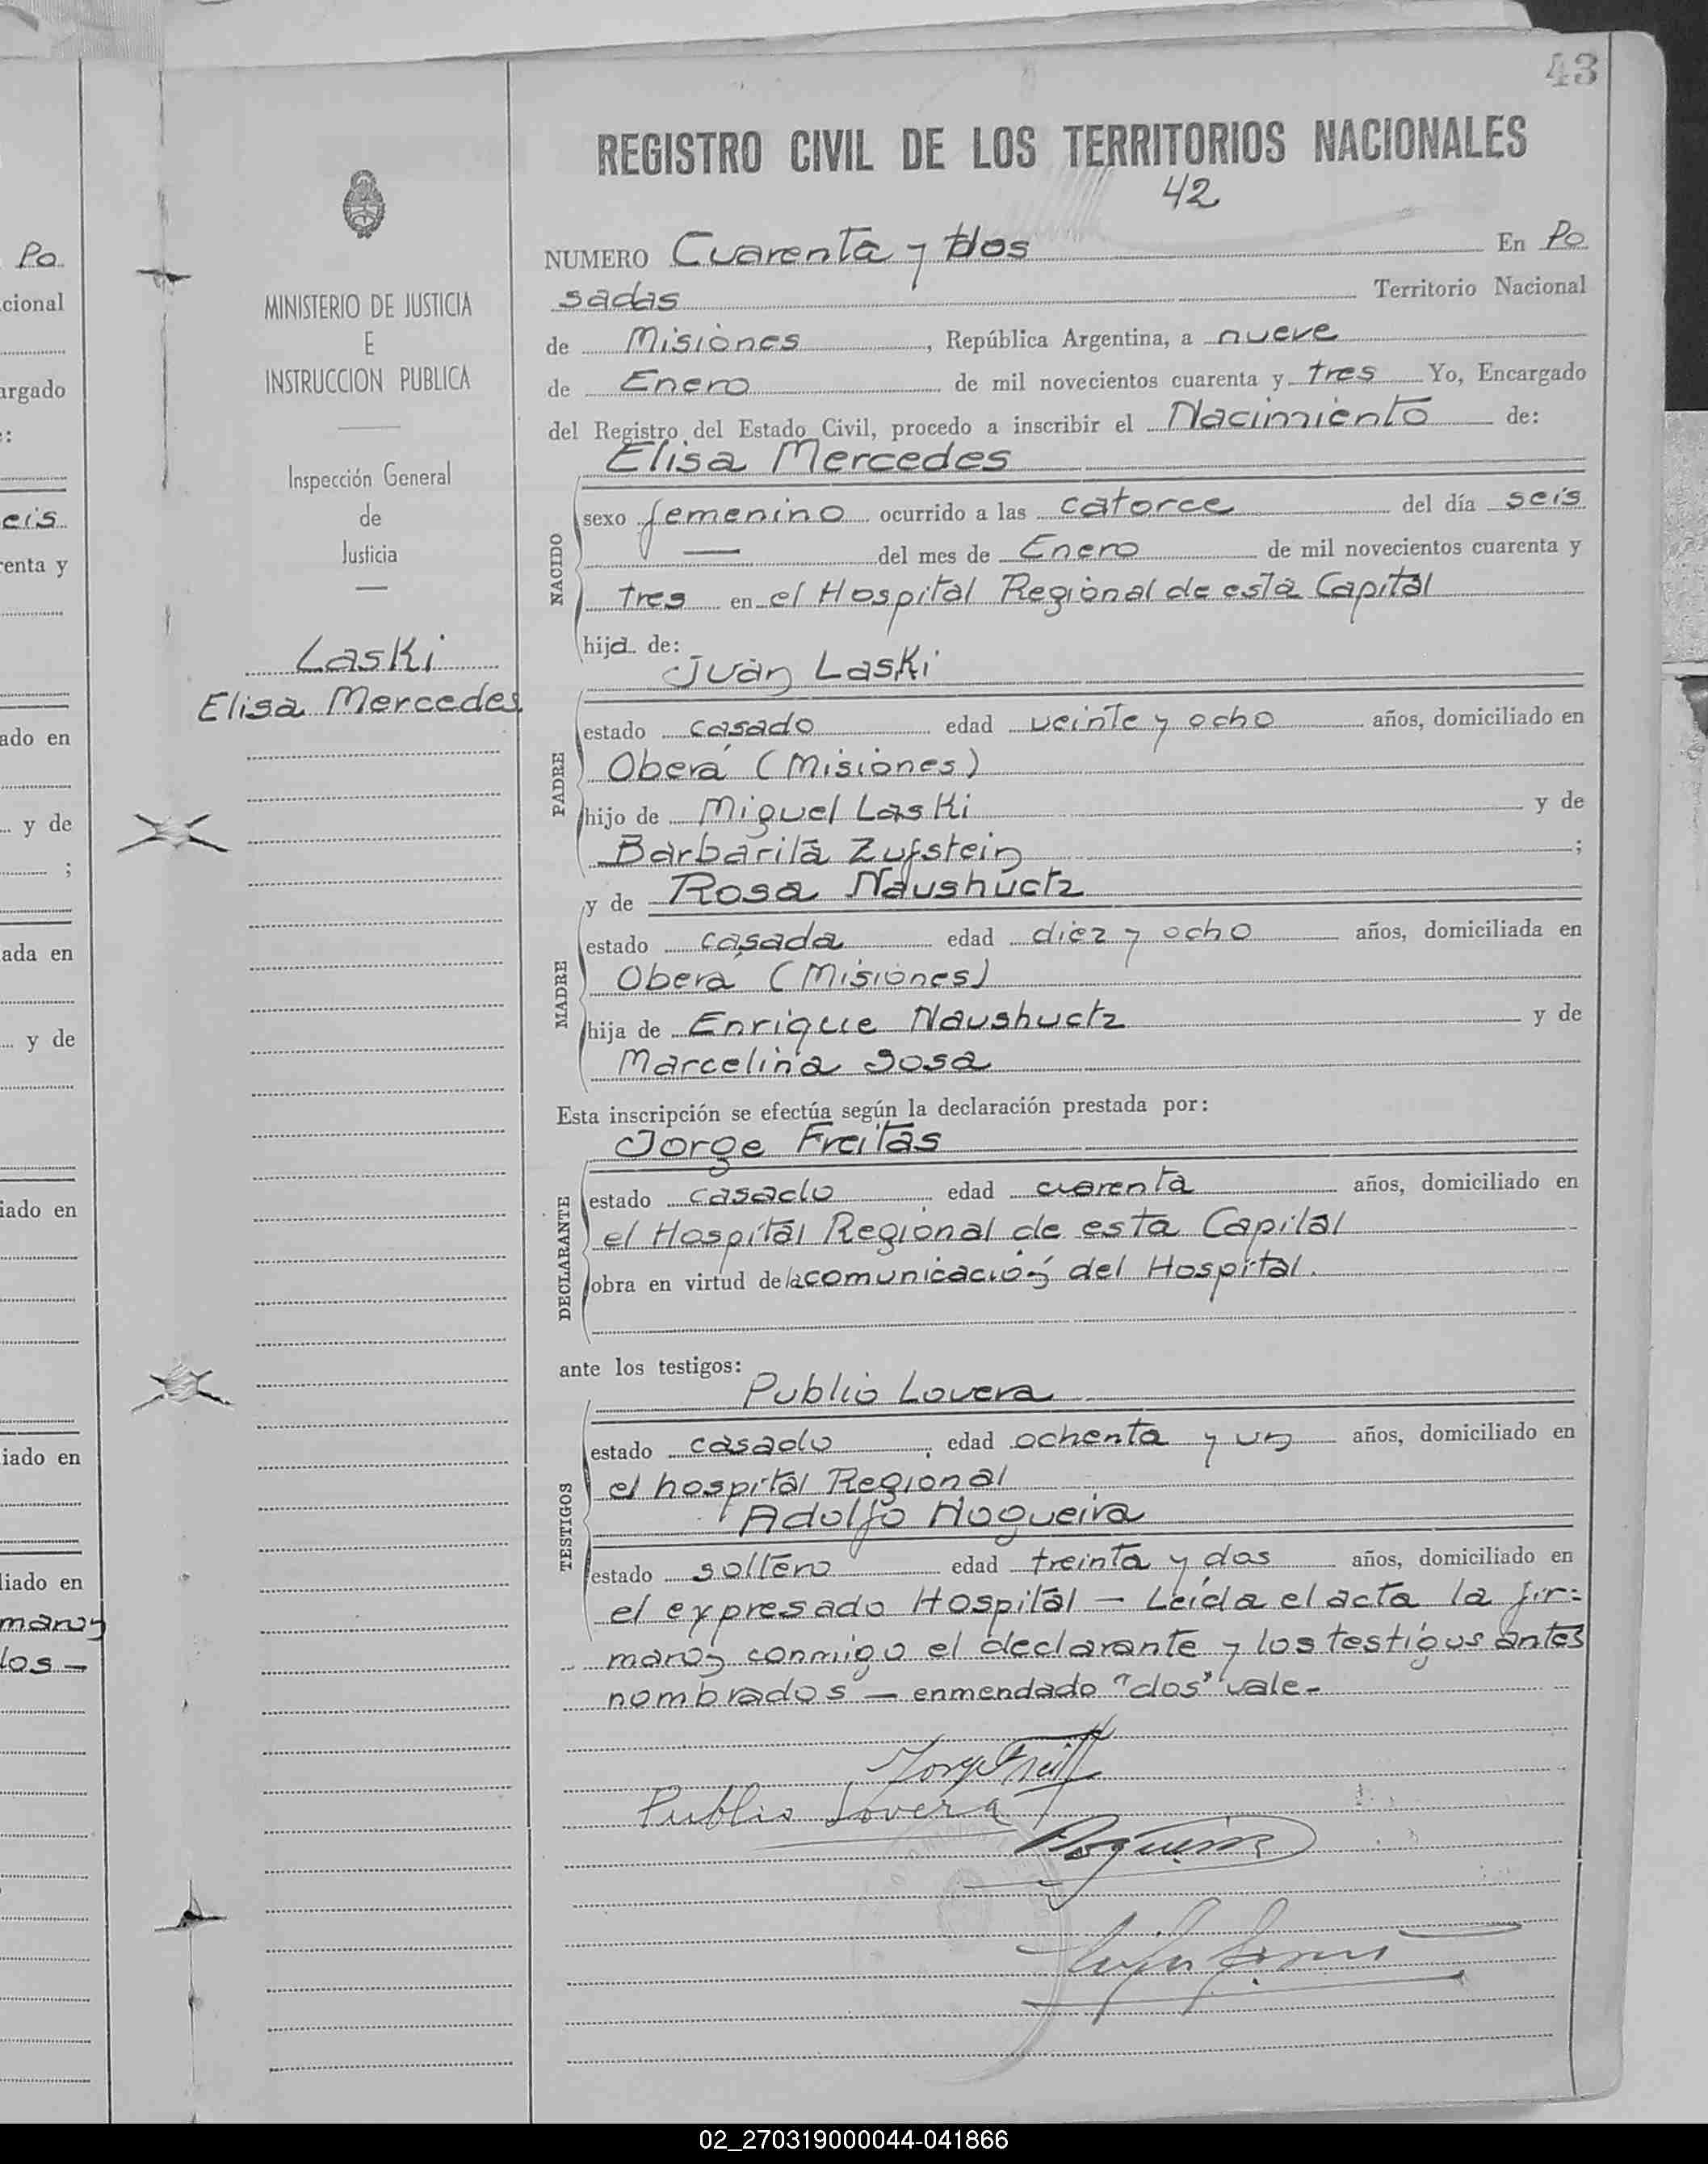 43
REGISTRO CIVIL DE LOS TERRITORIOS NACIONALES
42
NUMERO Cuarenta y dos En Po
sadas Territorio Nacional
de Misiones, República Argentina, a nueve
de Enero de mil novecientos cuarenta y tres Yo, Encargado
del Registro del Estado Civil, procedo a inscribir el Nacimiento de:
Elisa Mercedes
NACIDO
sexo femenino ocurrido a las catorce del día seis
— del mes de Enero de mil novecientos cuarenta y
tres en el Hospital Regional de esta Capital
hija de:
Juan Laski
PADRE
estado casado edad veinte y ocho años, domiciliado en
Oberá (Misiones)
hijo de Miguel Laski y de
Barbarita Zufstein;
y de Rosa Naushuctz
MADRE
estado casada edad diez y ocho años, domiciliada en
Oberá (Misiones)
hija de Enrique Naushuctz y de
Marcelina Sosa
Esta inscripción se efectúa según la declaración prestada por:
Jorge Freitas
DECLARANTE
estado casado edad cuarenta años, domiciliado en
el Hospital Regional de esta Capital
obra en virtud de la comunicación del Hospital.
ante los testigos:
Publio Lovera
TESTIGOS
estado casado, edad ochenta y un años, domiciliado en
el hospital Regional
Adolfo Nogueira
estado soltero edad treinta y dos años, domiciliado en
el expresado Hospital — Leída el acta la fir=
man conmigo el declarante y los testigos antes
nombrados — enmendado "dos" vale-
Publio Lovera
MINISTERIO DE JUSTICIA
E
INSTRUCCION PUBLICA
Inspección General
de
Justicia
Laski
Elisa Mercedes
Po
cional
argado
:
eis
renta y
ado en
y de
;
ada en
y de
iado en
iado en
liado en
man
los —
02_270319000044-041866